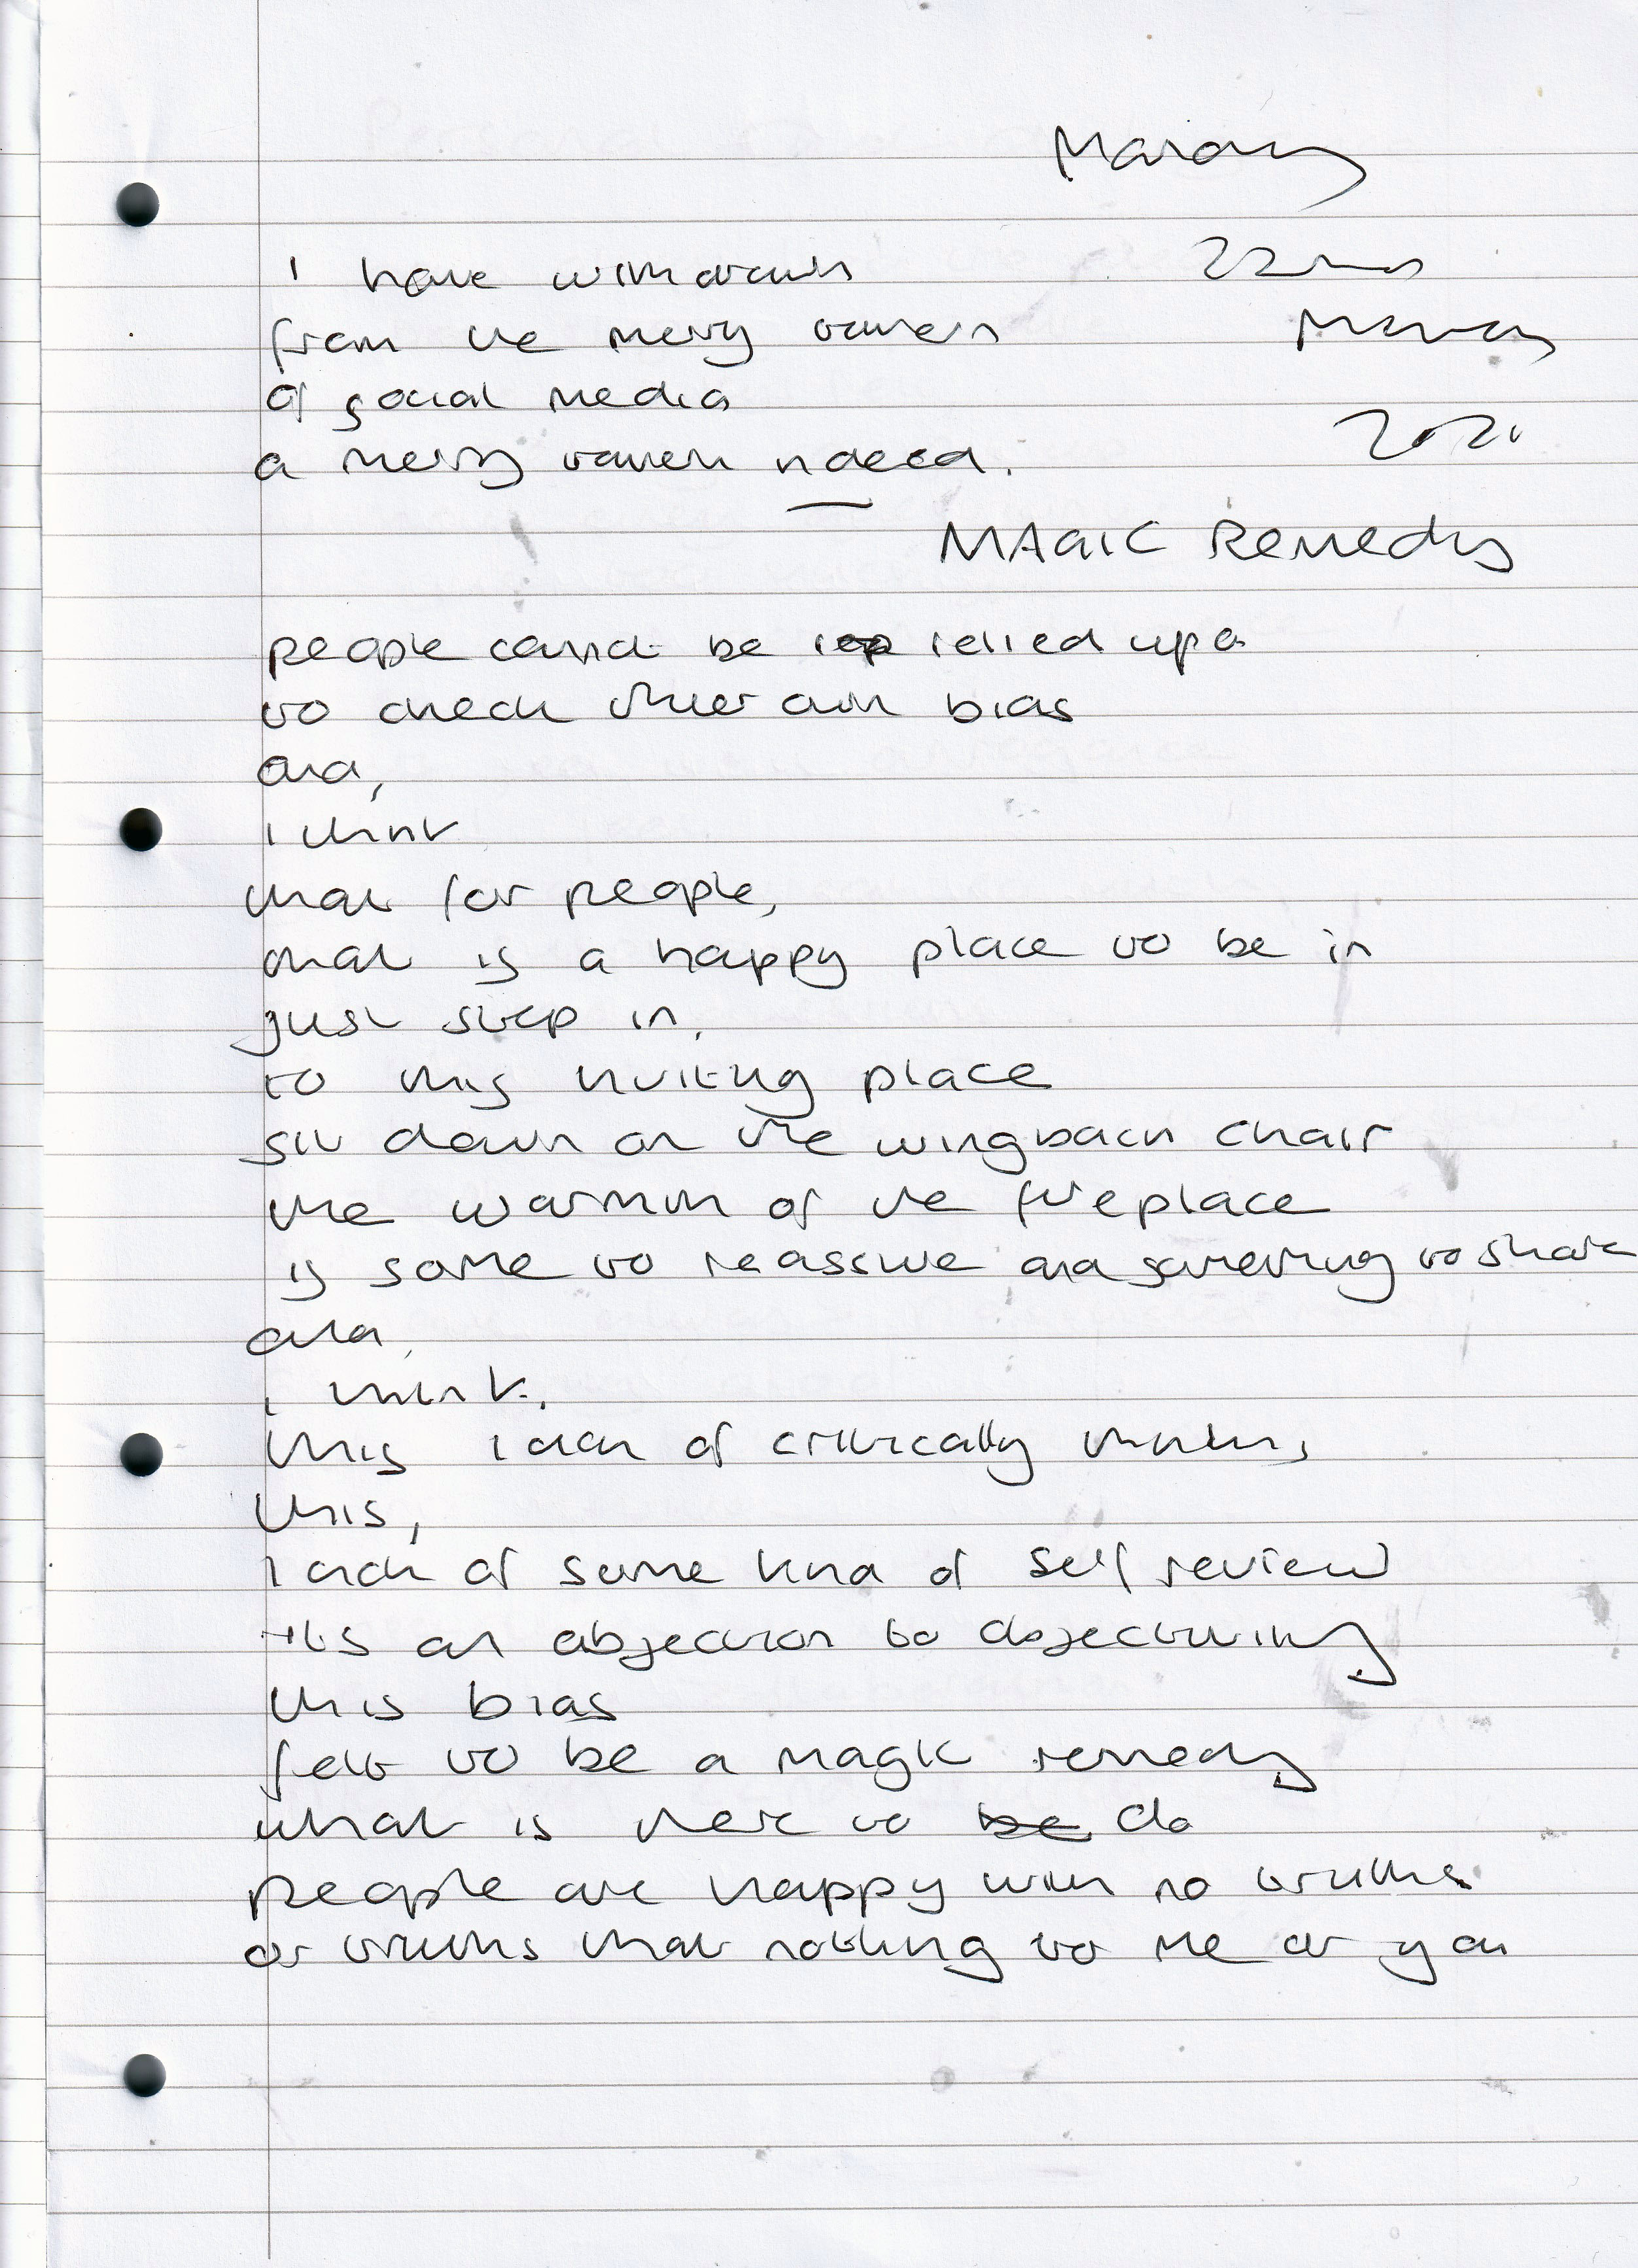 Monday
22nd
I have withdrawn
March
from the merry
of social media
2021
a merry indeed.
MAGIC Remedy
people cannot be relied upon
to check their own bias
and,
I think
that for people,
that is a happy place to be in
just step in,
to this inviting place
sit down on the wingback chair
the warmth of the fireplace
is some to reassure and something to share
and,
I think,
this lack of critically thinking
this,
lack of some kind of self review
its an objection to objectiving
this bias
felt to be a magic remedy
what is there to be do
people are happy with no truths
or truths that nothing to me or you